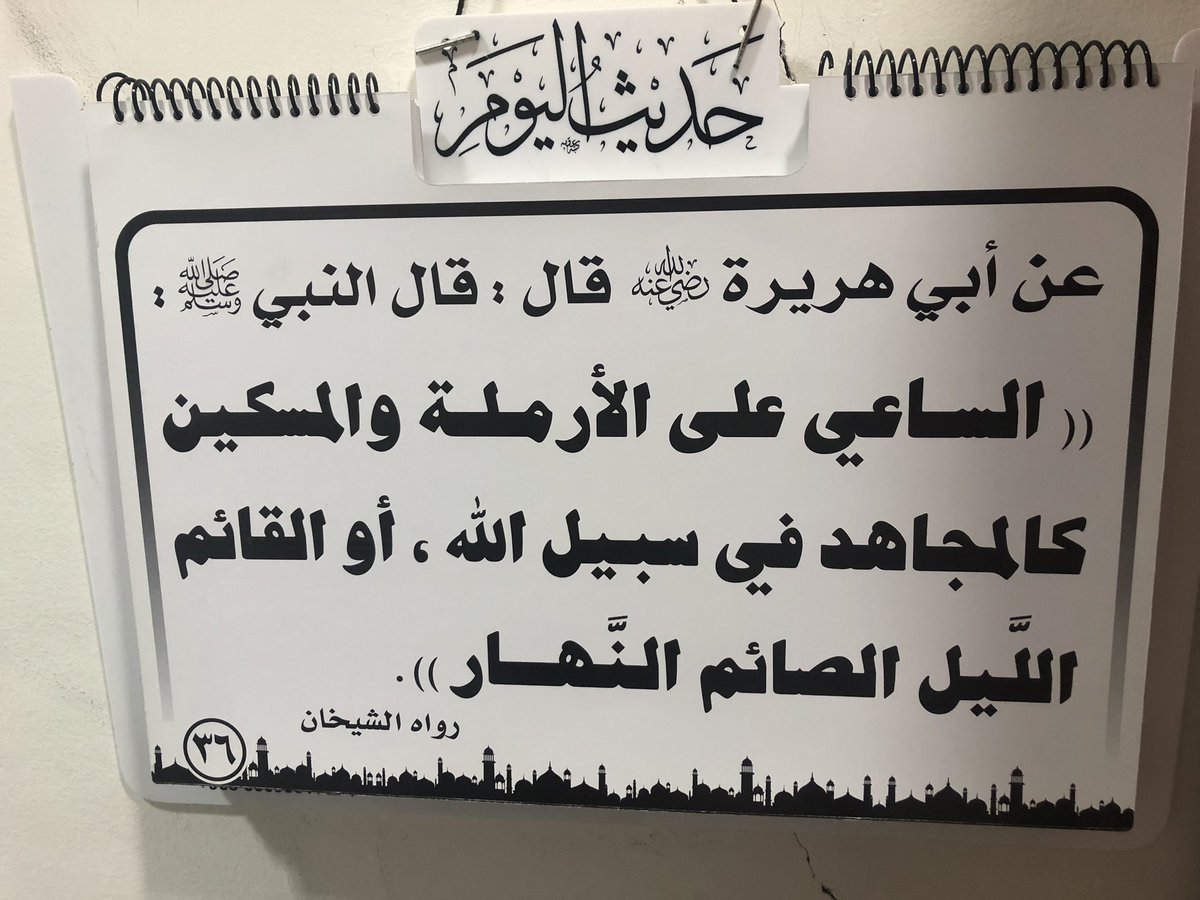 حَدِيثُ اليَوْمَ
عن أبي هريرة رضي الله عنه قال : قال النبي صلى الله عليه وسلم :
(( الساعي على الأرملة والمسكين
كالمجاهد في سبيل الله ، أو القائم
اللَّيل الصائم النَّهار )) .
رواه الشيخان
٣٦